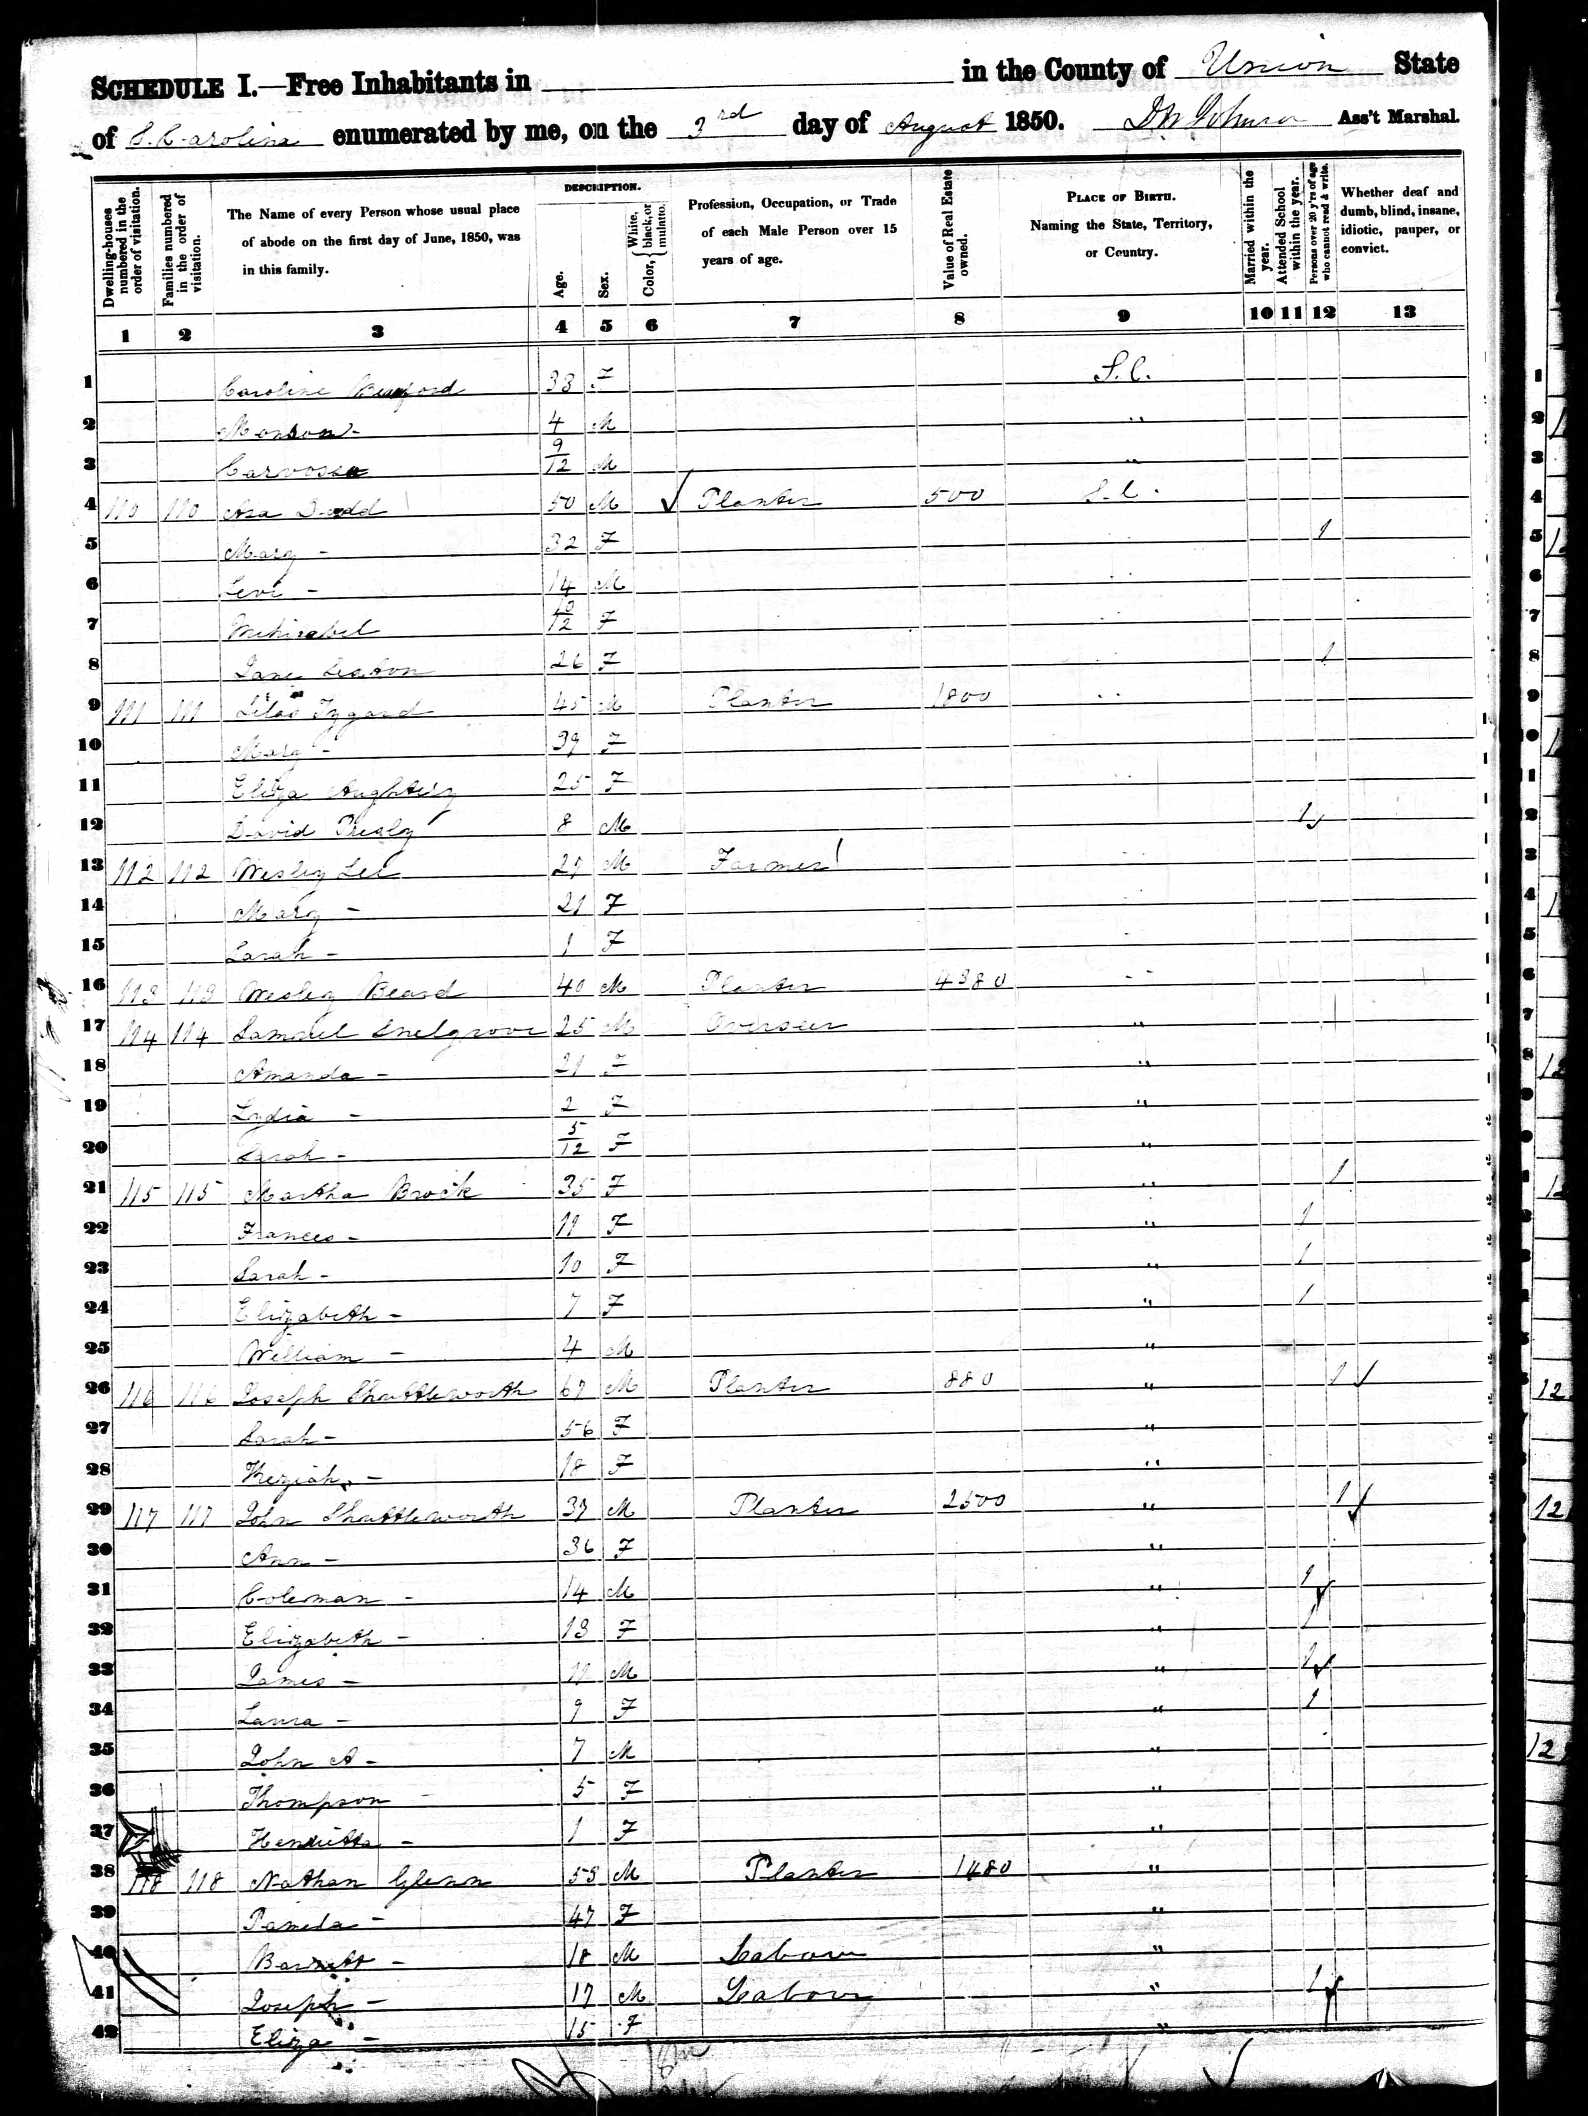 SCHEDULE I.—Free Inhabitants in in the County of Union State
of S. Carolina enumerated by me, on the 3rd day of August 1850. Ass't Marshal.
DESCRIPTION.
Dwelling-houses numbered in the order of visitation.
Families numbered in the order of visitation.
The Name of every Person whose usual place of abode on the first day of June, 1850, was in this family.
Age.
Sex.
Color, { White, black, or mulatto.
Profession, Occupation, or Trade of each Male Person over 15 years of age.
Value of Real Estate owned.
PLACE OF BIRTH. Naming the State, Territory, or Country.
Married within the year.
Attended School within the year.
Persons over 20 y'rs of age who cannot read & write.
Whether deaf and dumb, blind, insane, idiotic, pauper, or convict.
1 2 3 4 5 6 7 8 9 10 11 12 13
1 Caroline 38 F S.C.
2 4 M "
3 9/12 M "
4 110 110 Asa Dodd 50 M ✓ Planter 500 S.C.
5 Mary - 32 F 1
6 Levi - 14 M
7 Mehitabel 10/12 F
8 Jane Seaton 26 F 1
9 111 111 Silas 45 M Planter 1800 "
10 Mary - 39 F
11 Eliza 25 F
12 David 8 M 1
13 112 112 Wesley Lee 29 M Farmer
14 Mary - 21 F
15 Sarah - 1 F
16 113 113 Wesley Beard 40 M Planter 4380 "
17 114 114 Samuel Snelgrove 25 M Overseer "
18 Amanda - 21 F "
19 Lydia - 2 F "
20 Sarah - 5/12 F "
21 115 115 Martha Brock 35 F " 1
22 Frances - 11 F " 1
23 Sarah - 10 F " 1
24 Elizabeth - 7 F " 1
25 William - 4 M "
26 116 116 Joseph Shuttleworth 67 M Planter 880 " 1 ✓
27 Sarah - 56 F "
28 Keziah - 18 F "
29 117 117 John Shuttleworth 37 M Planter 2500 " 1 ✓
30 Ann - 36 F "
31 Coleman - 14 M " 1 ✓
32 Elizabeth - 13 F " 1
33 James - 11 M " 1 ✓
34 Laura - 9 F " 1
35 John A - 7 M "
36 Thompson - 5 F "
37 Henrietta - 1 F "
38 118 118 Nathan Glenn 53 M Planter 1480 "
39 Pamela - 47 F "
40 Barnett - 18 M Labour "
41 Joseph - 17 M Labour " 1 ✓
42 Eliza - 15 F "